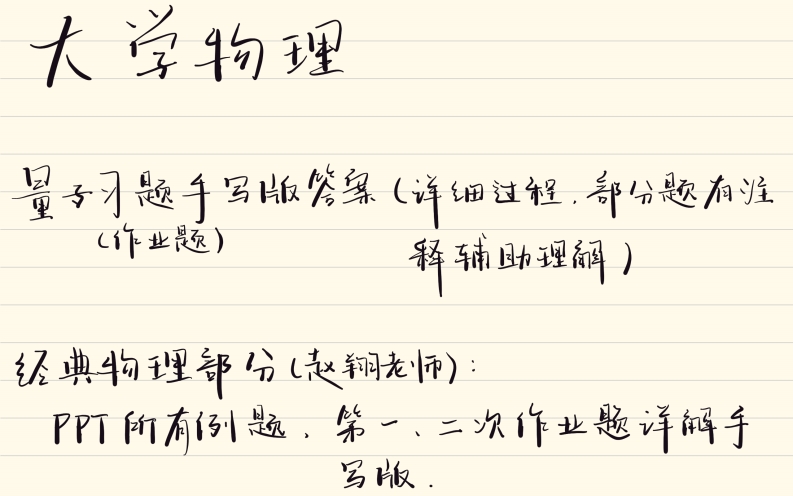 大学物理
量子习题手写版答案(详细过程.部分题有注
(作业题)
释辅助理解)
经典物理部分(赵翔老师):
PPT所有例题、第一、二次作业题详解手
写版.